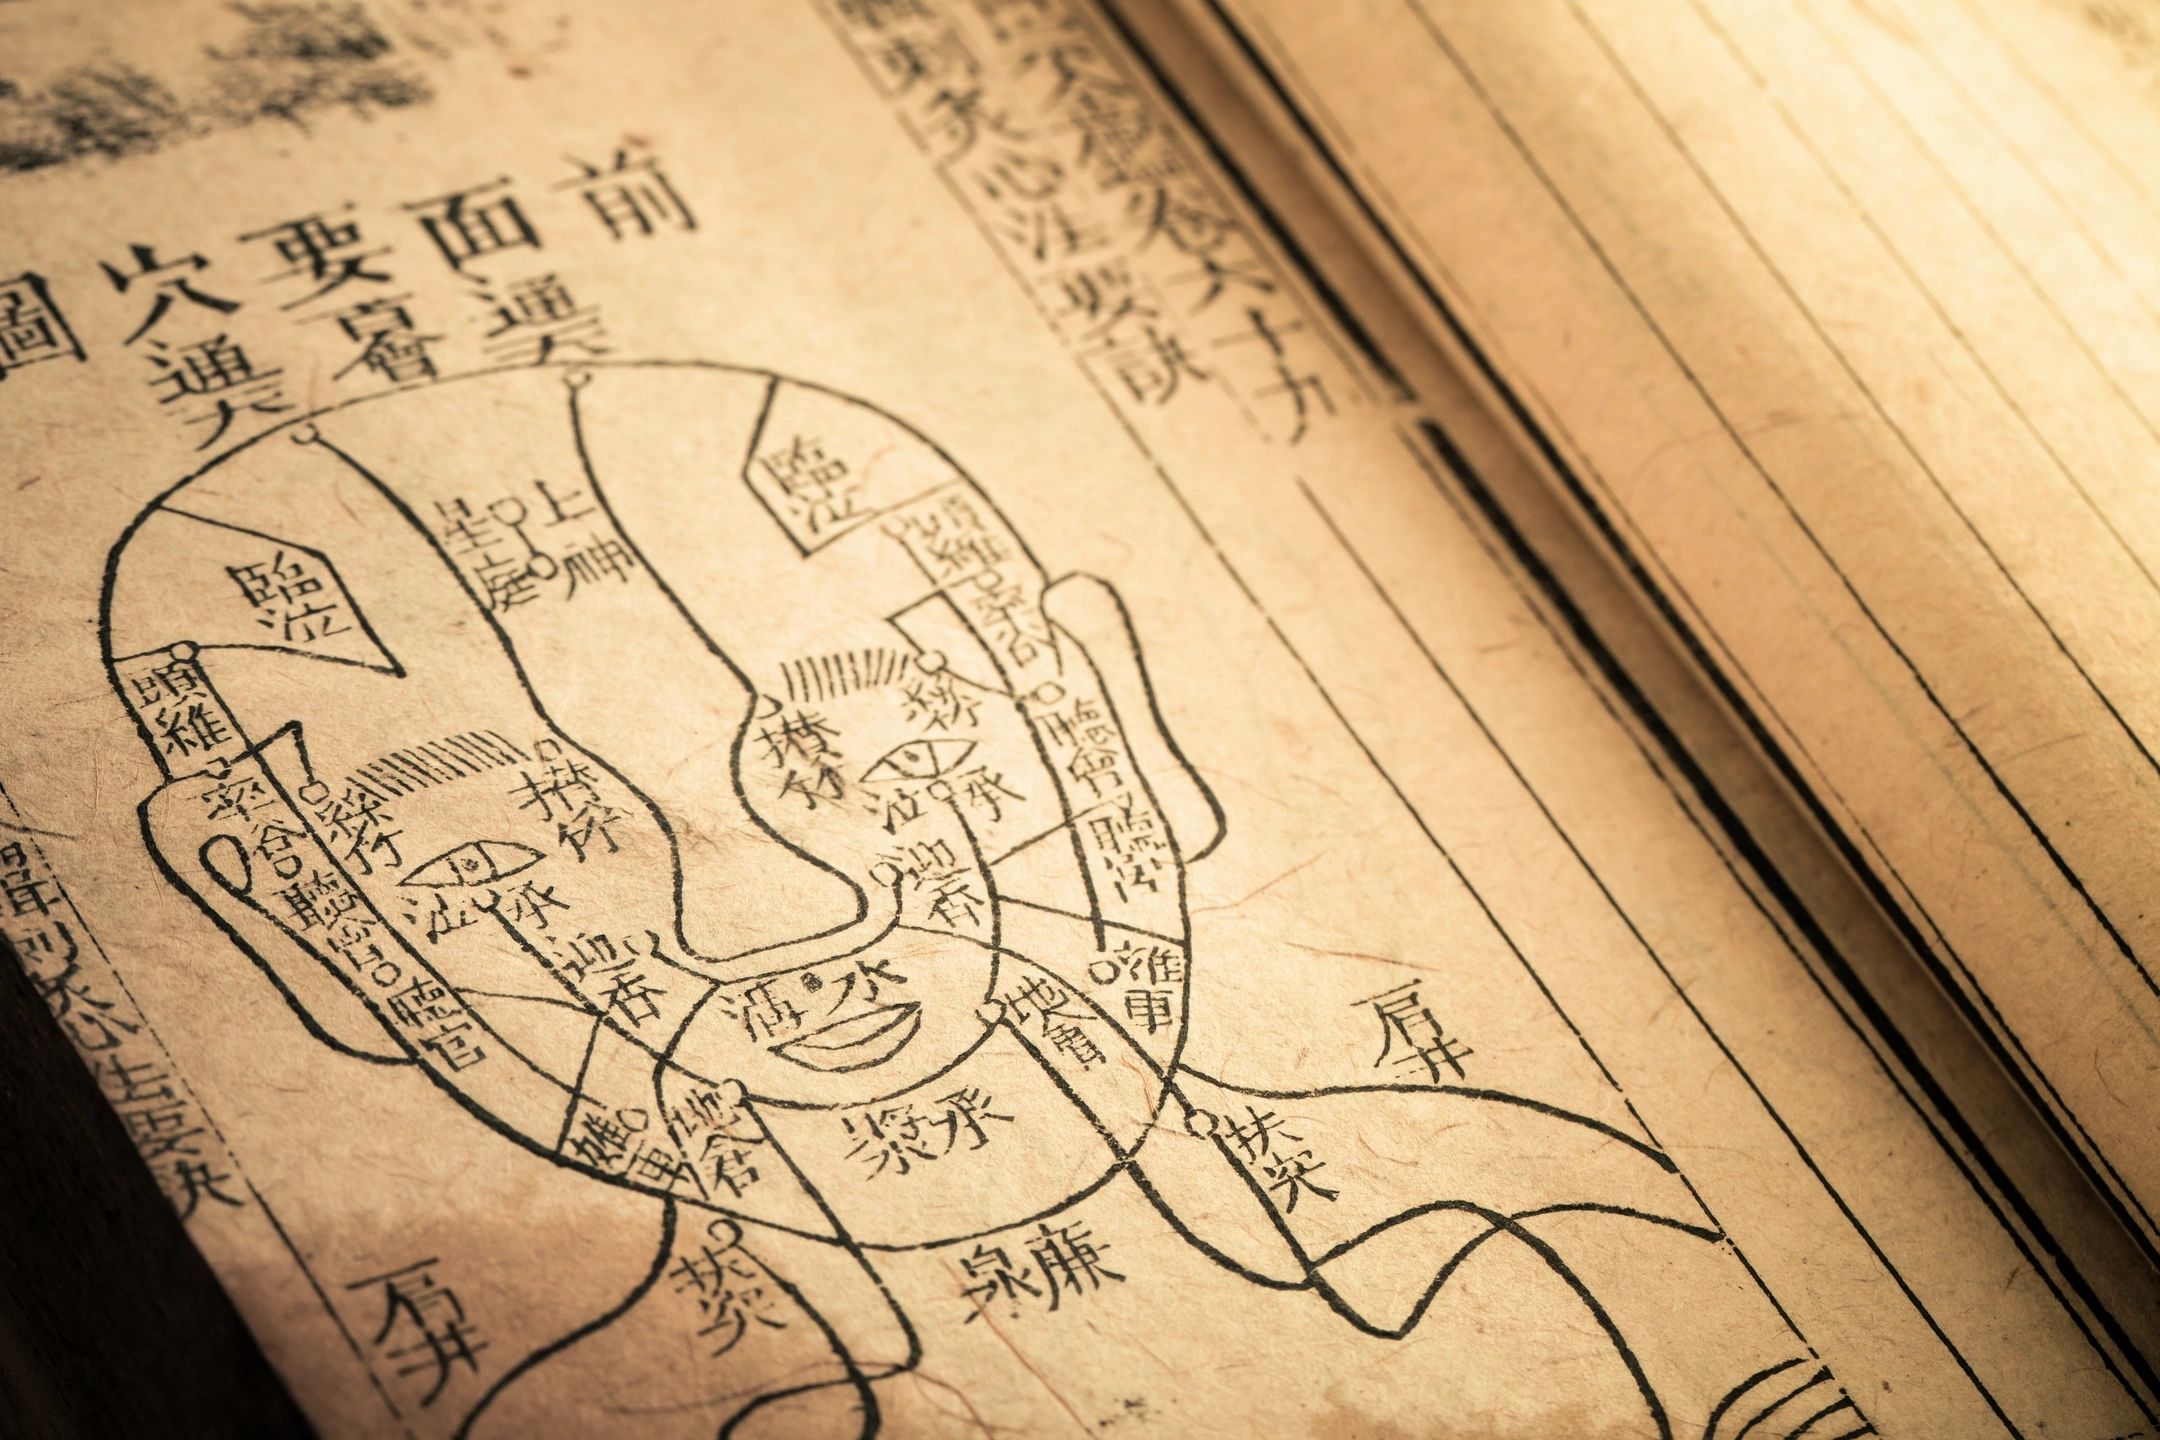 前面要穴圖
通天
百會
通天
臨泣
臨泣
上
星
神庭
頭維
頭維
率谷
率谷
絲竹
絲竹
攢竹
攢竹
承泣
承泣
聽會
聽會
聽宮
迎香
迎香
水溝
地倉
地倉
車
車
承漿
廉泉
扶突
扶突
肩井
肩井
卷六十九
刺灸心法要訣
刺灸心法要訣